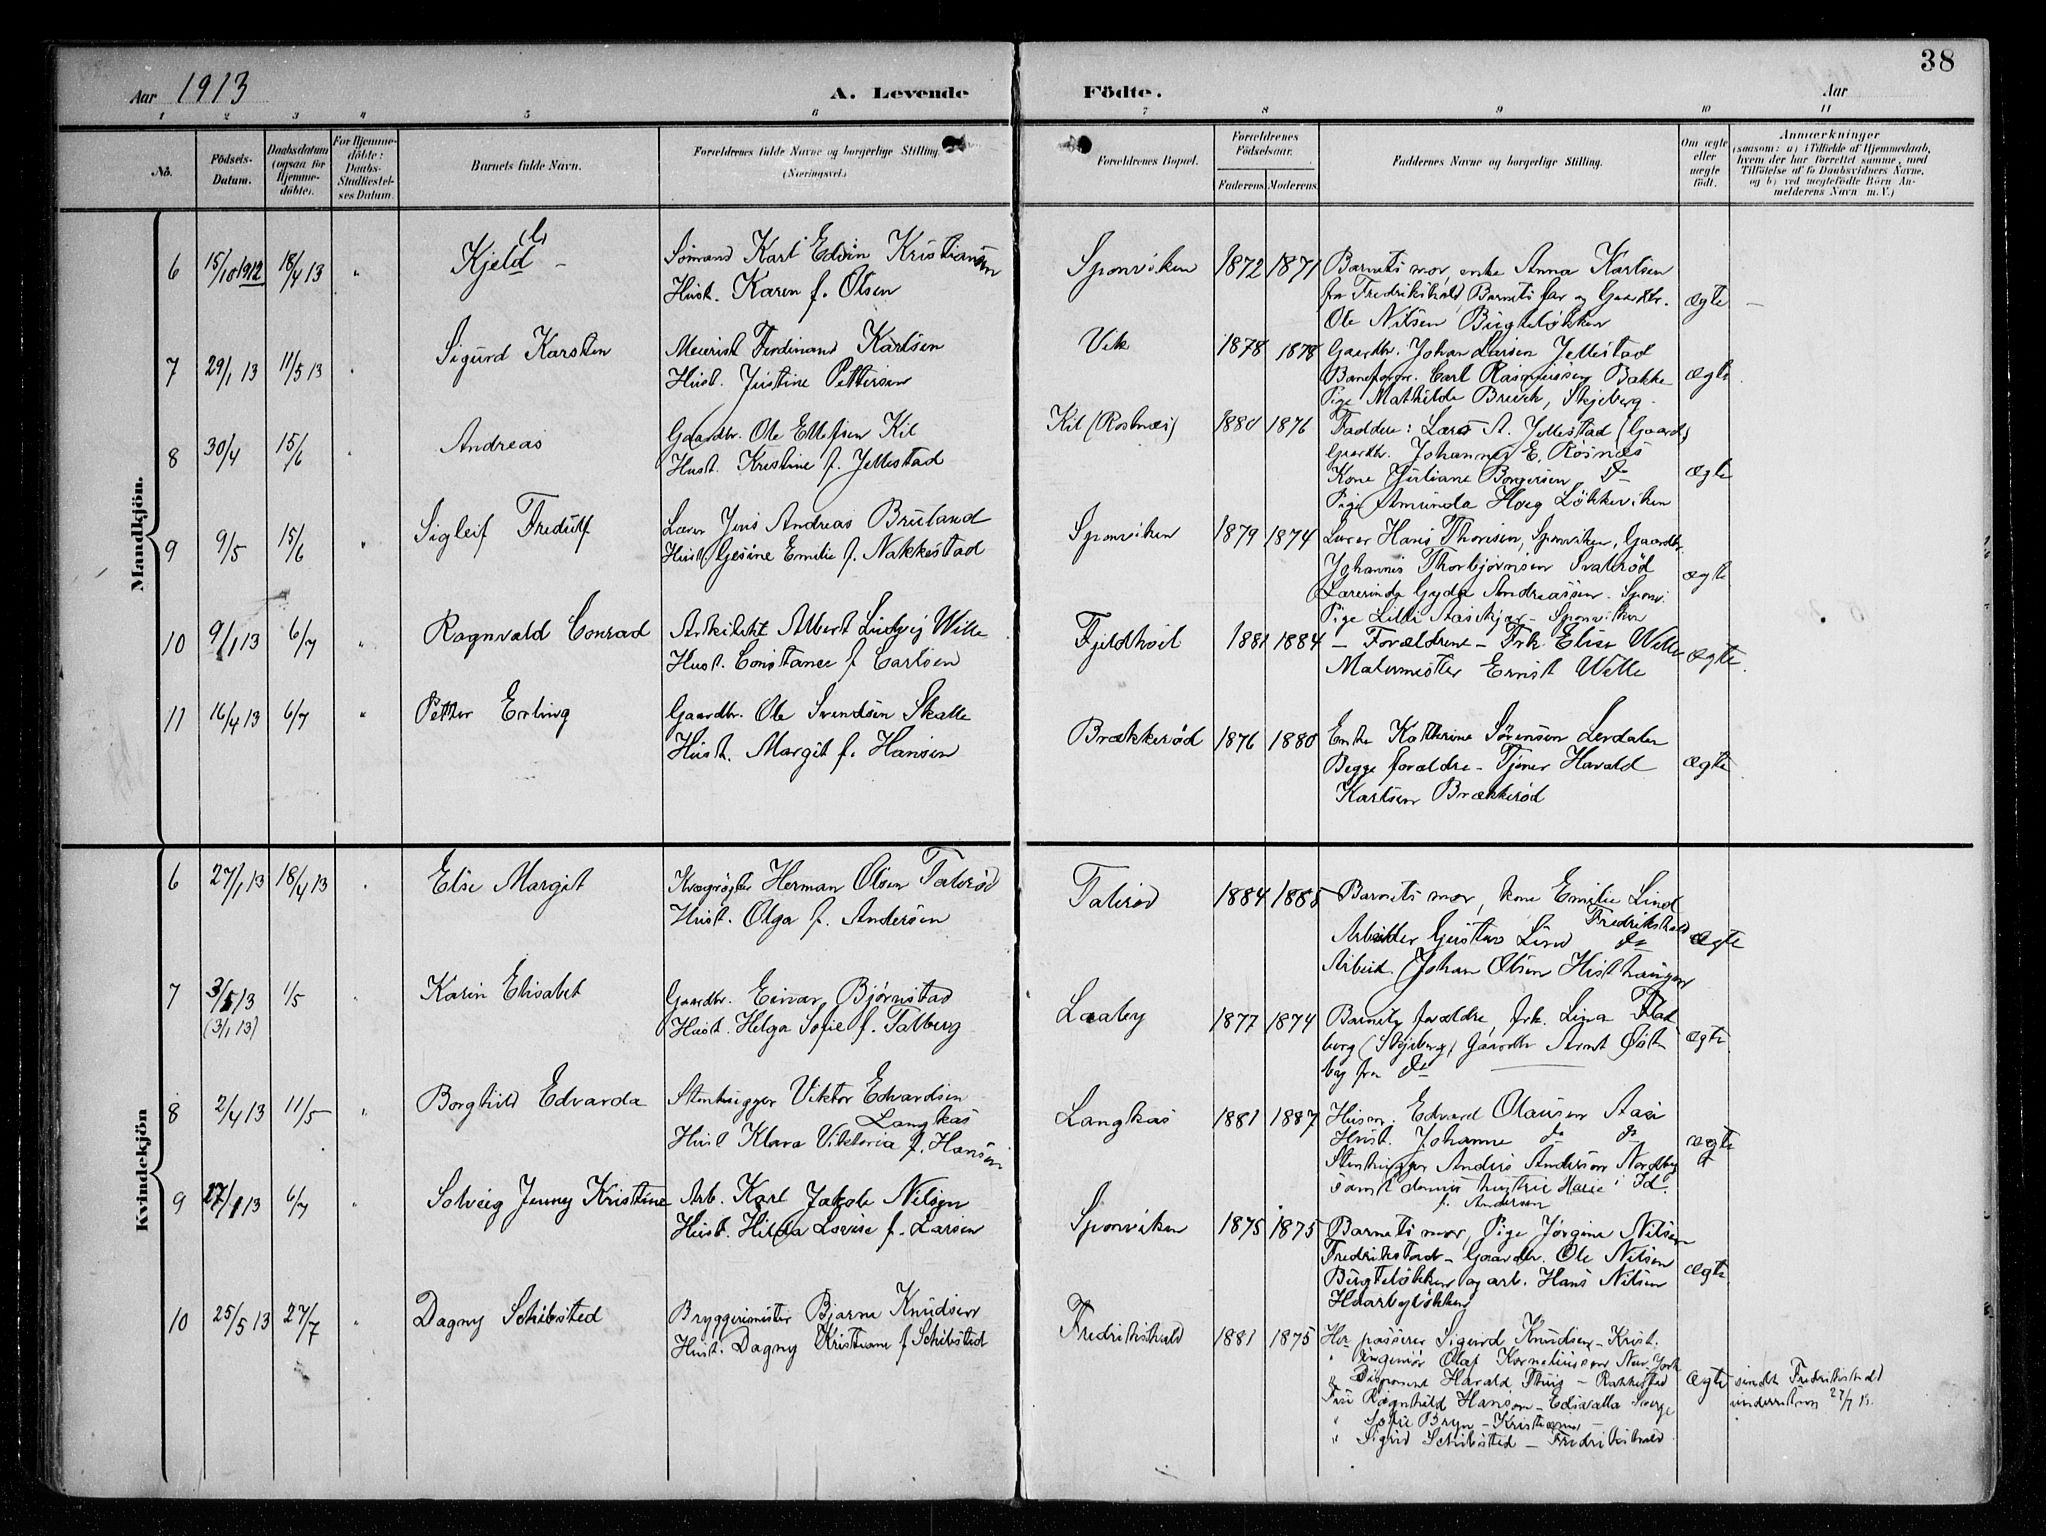 38
Aar 1913 A. Levende Födte. Aar
1 2 3 4 5 6 7 8 9 10 11
No.
Födsels-Datum.
Daabsdatum (ogsaa for Hjemme-döbte).
For Hjemme-döbte: Daabs-Stadfæstel-ses Datum.
Barnets fulde Navn.
Forældrenes fulde Navne og borgerlige Stilling.
(Næringsvei.)
Forældrenes Bopæl.
Forældrenes Födselsaar.
Faderens. Moderens.
Faddernes Navne og borgerlige Stilling.
Om ægte eller uægte födt.
Anmærkninger
(saasom: a) i Tilfælde af Hjemmedaab,
hvem der har forrettet samme, med
Tilföielse af to Daabsvidners Navne,
og b) ved uægtefödte Börn An-
melderens Navn m. V.)
Mandkjön.
6 15/10 1912 18/4 13 " Kjeld - Sömand Karl Edvin Kristiansen
Hust. Karen f. Olsen
Sponviken 1872 1871 Barnets mor, enke Anna Karlsen
fra Fredrikshald, Barnets far og Gaardbr.
Ole Nilsen Bügteløkken
ægte -
7 29/1 13 11/5 13 " Sigurd Karsten Meierist Ferdinand Karlsen
Hust. Justine Pettersen
Vik 1878 1878 Gaardbr. Johan Larsen Jellestad
Baneformr. Carl Rasmussen Bakke
Pige Mathilde Skjeberg
ægte
8 30/4 15/6 " Andreas Gaardbr. Ole Ellefsen Kil
Hust. Kristine f. Jellestad
Kil (Rosnæs) 1880 1876 Faddere: Lars A. Jellestad (Gaardb)
Gaardbr. Johannes E. Rösnæs
Kone Juliane Borgersen do
Pige Amunda Hoeg Løkkeviken
ægte
9 9/5 15/6 " Sigleif Fredulf Lærer Jens Andreas Bruland
Hust. Gesine Emilie f. Nakkestad
Sponviken 1879 1874 Lærer Hans Thoresen, Sponviken, Gaardbr.
Johannes Thorbjørnsen Svalerød
Lærerinde Gyda Andreassen. Sponv.
Pige Lilli - Sponviken
ægte
10 9/1 13 6/7 " Ragnvald Conrad Arkitekt Albert Ludvig Wille
Hust. Constance f. Carlsen
Fjeldhøit 1881 1884 - Forældrene - Frk. Elise Wille
Malermester Ernst Wille
ægte.
11 16/4 13 6/7 " Petter Erling Gaardbr. Ole Svendsen Skalle
Hust. Margit f. Hansen
Brækkerød 1876 1880 Enke Kathrine Sørensen Lerdalen
Begge forældre - Tjener Harald
Karlsen Brækkerød
ægte
Kvindekjön
6 27/1 13 18/4 13 " Else Margit Kvægrøgter Herman Olsen Folerød
Hust. Olga f. Andersen
1884 1885 Barnets mor, kone Emilie Lind
Fredrikshald
Arbeider Gustav Lind do
Arbeid. Johan Olsen
ægte
7 3/5 13 1/5 " Karin Elisabet Gaardbr. Einar Bjørnstad
(3/1 13) Hust. Helga Sofie f. Talberg
Laaby 1877 1874 Barnets forældre, frk. Lina
berg (Skjeberg) Gaardbr. Arnt Øst-
by fra do
ægte
8 2/4 13 11/5 " Borghild Edvarda Stenhugger Viktor Edvardsen
Langkas
Hust. Klara Viktoria f. Hansen
Langkas 1881 1887 Husm. Edvard Olausen Aasa
Hust. Johanne do do
Stenhugger Anders Andersen Nordby
samt dennes hustru Marie i Id.
f. Andersen
ægte
9 27/1 13 6/7 " Solveig Jenny Kristine Arb. Karl Jakob Nilsen
Hust. Hilda Lovise f. Larsen
Sponviken 1875 1875 Barnets mor, Pige Jørgine Nilsen
Fredrikstad - Gaardbr. Ole Nilsen
Bügteløkken og arb. Hans Nilsen
Haarbyløkken
ægte
10 25/5 13 27/7 " Dagny Schibsted Bryggerimester Bjarne Knudsen
Hust. Dagny Kristiane f. Schibsted
Fredrikshald 1881 1875 Hr. passerer Sigurd Knudsen - Krist.
" Ingeniør Olaf Korneliussen New York
" Disponent Harald - Rakkestad
Frk Ragnhild Hanson - Edsvalla Sverge
" Sofie Bryn - Kristiania
" Sigrid Schibsted - Fredrikshald
ægte
Fredrikshald
underrettet 27/7 13.